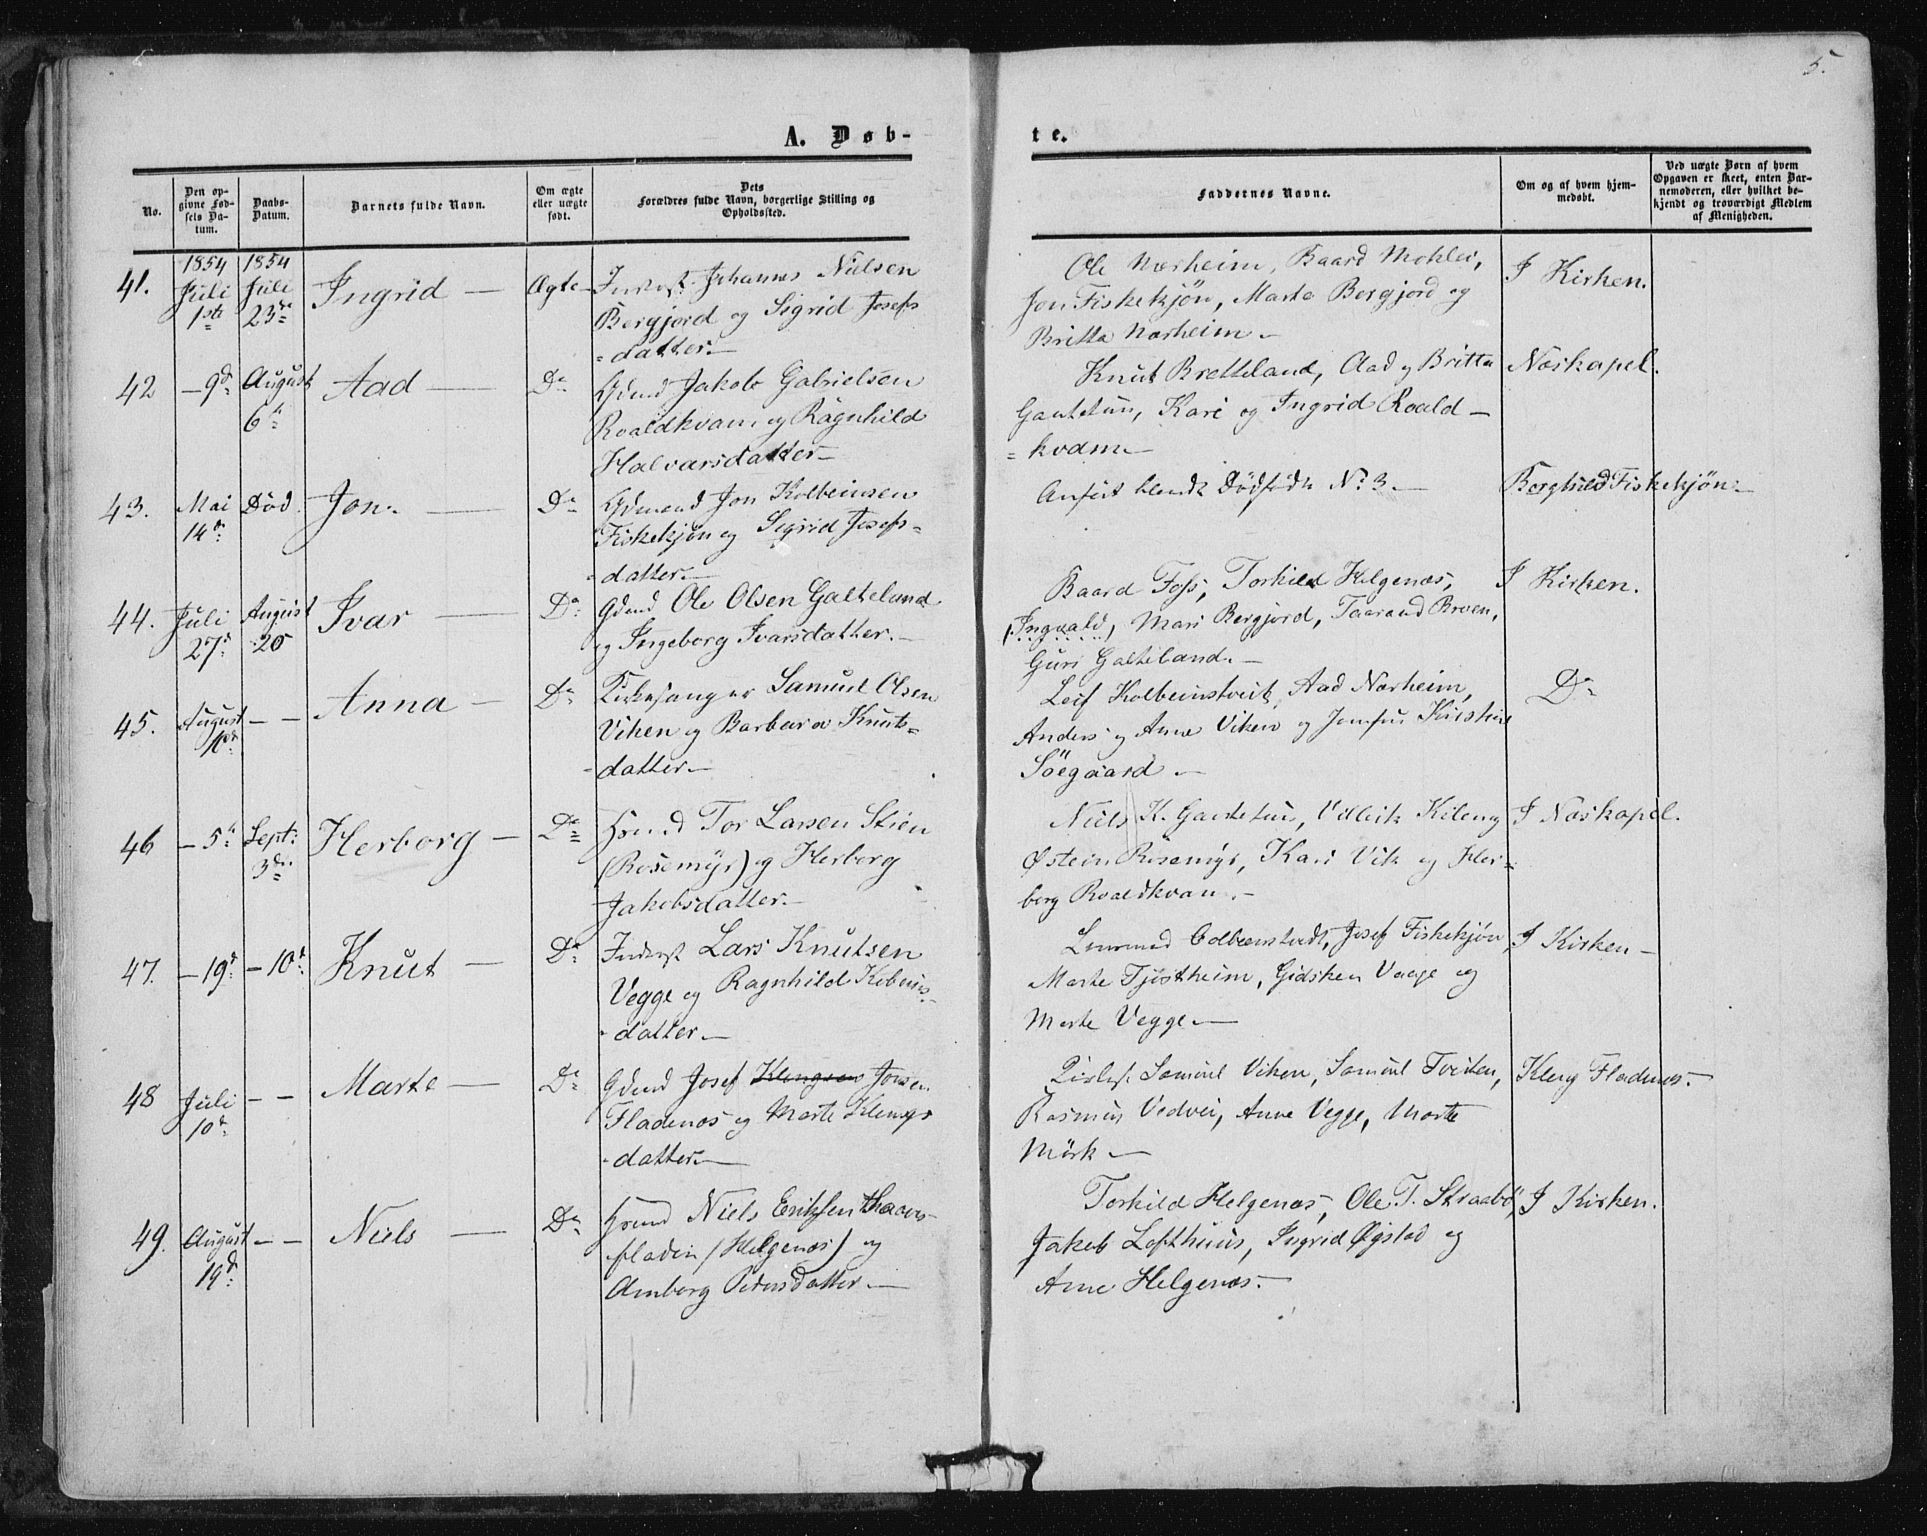 5.
A. Døb-
te.
No.
Den op-
givne Fød-
sels Da-
tum.
Daabs-
Datum.
Barnets fulde Navn.
Om ægte
eller uægte
født.
Dets
Forældres fulde Navn, borgerlige Stilling og
Opholdssted.
Faddernes Navne.
Om og af hvem hjem-
medøbt.
Ved uægte Børn af hvem
Opgaven er skeet, enten Bar-
nemoderen, eller hvilket be-
kjendt og troværdigt Medlem
af Menigheden.
41. 1854 Juli 1ste 1854 Juli 23de Ingrid — Ægte — Inderst Johannes Nielsen
Bergjord og Sigrid Josefs
=datter.—
Ole Nærheim, Baard Mohlei,
Jon Fiskekjøn, Marta Bergjord og
Britta Nærheim.—
I Kirken.
42 — 9d: August 6t: Aad — Do Gdmd Jakob Gabrielsen
Roaldkvam og Ragnhild
Halvarsdatter—
Knut Bratteland, Aad og Britta
Gautetun, Kari og Ingrid Roald—
=kvam.—
Næskapel.
43. Mai 14d: Død. Jon. — Do Gdmand Jon Kolbeinsen
Fiskekjøn og Sigrid Josefs=
=datter.—
Anført blandt Dødfødte No 3.—
Borghild Fiskekjøn.—
44. Juli 27d: August 20 Ivar — Do: Gdmd Ole Olsen Galteland
og Ingeborg Ivarsdatter.—
Baard Foss, Torkild Helgenæs,
(Ingvald, Mari Bergjord, Taarand Broen,
Guri Galteland.—
I Kirken.
45. August — — Anna — Do Kirkesanger Samuel Olsen
Viken og Barbara Knuts=
=datter.—
Leif Kolbeinstveit, Aad Nærheim,
Anders og Anne Viken og Jomfru Kristine
Søegaard.—
Do
46 — 5t: Sept: 3de: Herborg — Do Hsmd Tor Larsen Stien
(Rosemyr) og Herborg
Jakobsdatter.—
Niels K. Gautetun, Vidlik Kilen og
Østein Rosemyr, Kari Vik og Her=
borg Roaldkvam.—
I Næskapel.
47. — 19d: — 10d: Knut — Do: Inderst Lars Knutsen
Vegge og Ragnhild
=datter.—
Josef Fiskekjøn,
Marte Tjøstheim, Gidsken Vaage og
Marte Vegge.—
I Kirken—
48 Juli 10d: — — Marte — Do Gdmd Josef Klengsen Jonsen
Fladenæs og Marte Klengs
=datter.—
Samuel Viken, Samuel Tveiten,
Rasmus Vedvei, Anne Vegge, Marte
Mörk—
Kleng Fladenæs.
49. August 19d: — — Niels — Do Hsmd Niels Eriksen
fladen (Helgenæs) og
Amborg Pedersdatter.—
Torkild Helgenæs, Ole T. Straabø,
Jakob Lofthuus, Ingrid Øigstad og
Anne Helgenæs.—
I Kirken.